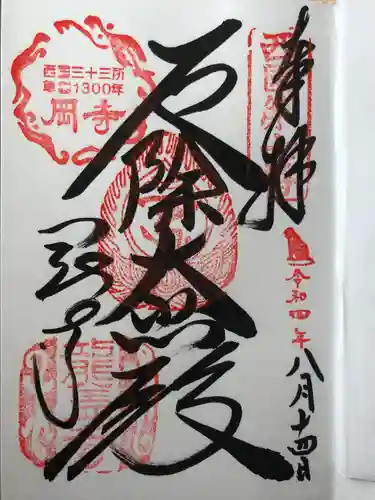 奉拝
令和四年
八月十四日
厄除大悲殿
龍蓋寺
西国三十三所
草創1300年
岡寺